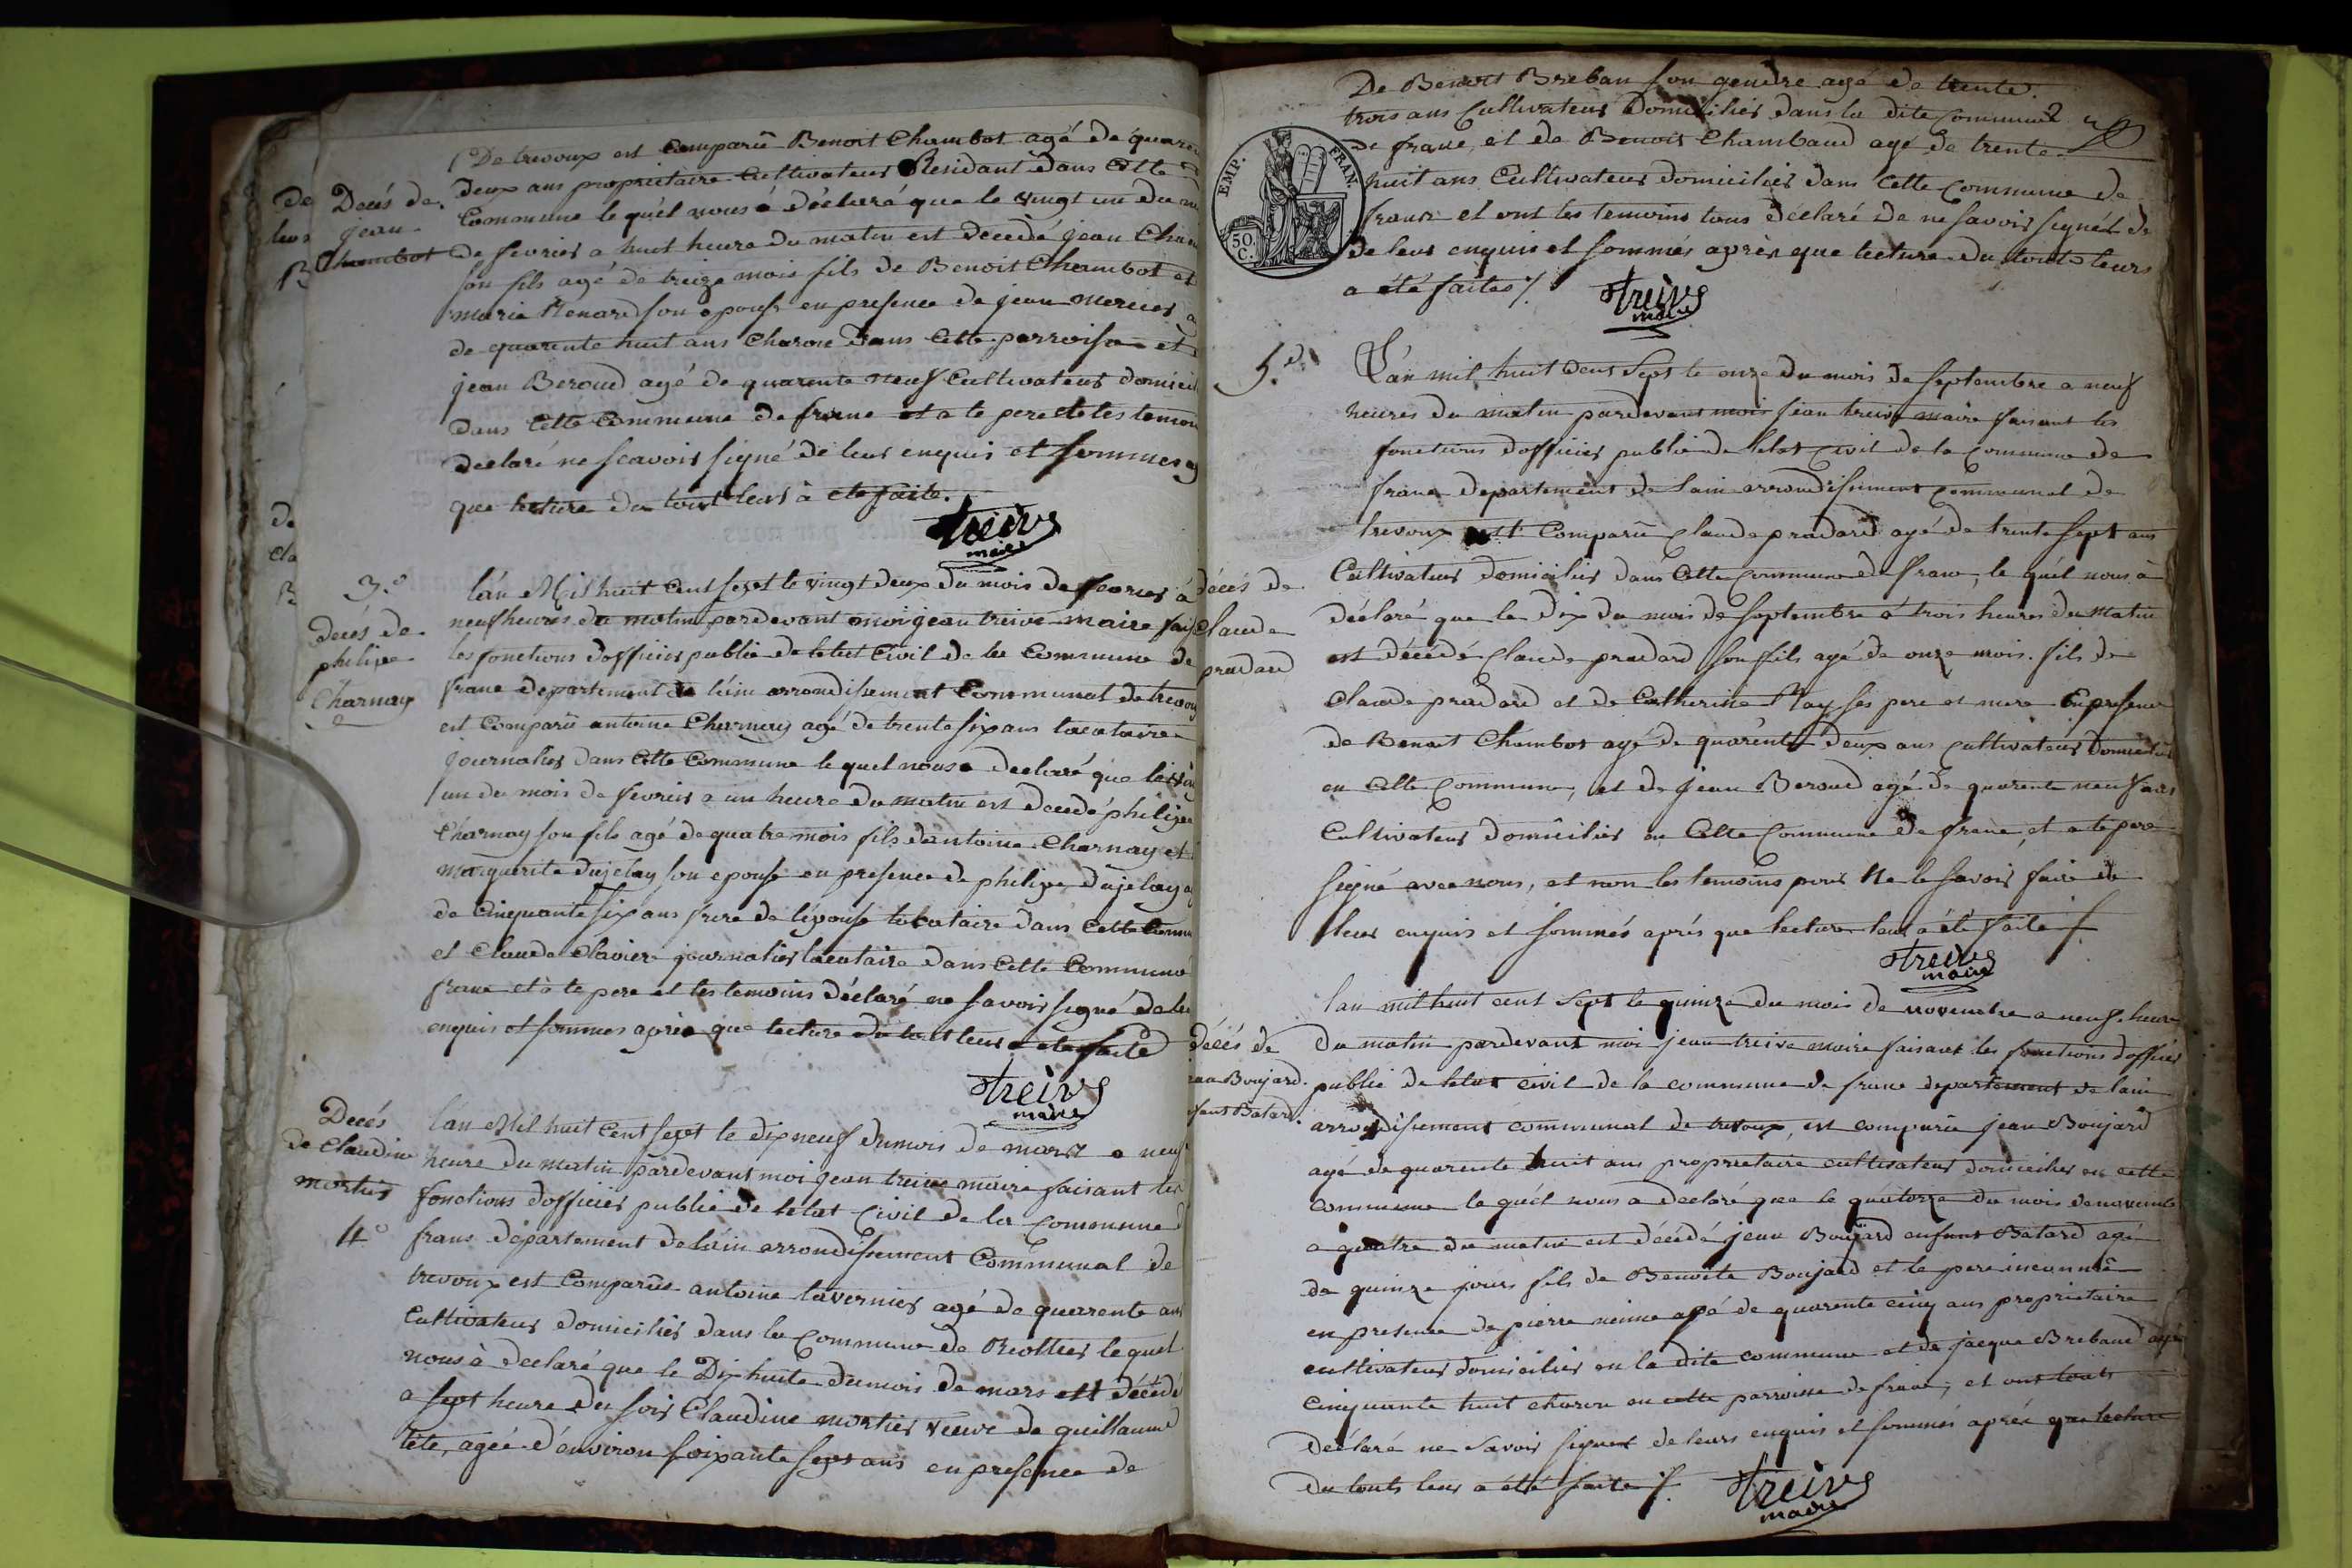 De trevoux est comparû Benoit Chambot agé de quaren
deux ans proprietaire Cultivateur Residant dans Cette
Commune le quél nous à déclaré que le vingt un du
de fevrier a huit heure du matin est decedé jean Cham
son fils agé de treize mois fils de Benoit Chambot et
marie Renard son epouse en presence de jean mercier a
de quarente huit ans Charon dans Cette parroisse et
jean Beroud agé de quarente neuf Cultivateur domicil
dans Cette Commune de frane et a le pere et les temoin
declaré ne scavoir signé de leur enquis et sommes a
que lecture du tout leur à ete faite.
treive
maire
Decés de
jean
Chambot
3.e
decés de
philipe
Charnay
l'an Mil huit Cent sept le vingt deux du mois de fevrier à
neuf heures du matin pardevant moi jean treive maire fai
les fonctions d'officier public de letat Civil de la Commune de
frane departement de l'ein arrondisement Communal de trevou
est Comparû antoine Charnay agé de trente six ans locataire
journalier dans Cette Commune le quel nous a declaré que le vin
un du mois de fevrier a un heure du matin est decedé philipe
Charnay son fils agé de quatre mois fils dantoine Charnay et
marguerite Dujelay son epouse en presence de philipe Dujelay a
de Cinquante six ans frere de lépouse locataire dans Cette Commu
et Claude Clavier journalier locataire dans Cette Commune
frane et à le pere et les temoins déclaré ne savoir signé de leu
enquis et sommes après que lecture du tout leur a ete faite
treive
maire
Decés
de Claudine
mortier
4e
lan Mil huit Cent sept le dix neuf du mois de mars a neuf
heure du matin pardevant moi jean treive maire faisant les
fonctions d'officier public de letat Civil de la Commune
frans département de lein arrondissement Communal de
trevoux est Comparûe antoine tavernier agé de quarente ans
Cultivateur domicilié dans la Commune de Reottier le quel
nous à declaré que le Dix huite du mois de mars est décédé
a sept heure du soir Claudine mortier veuve de guillaume
tête, agée d'environ soixante sept ans en presence de
De Benoit Breban son gendre agé de trente
trois ans Cultivateur Domicilié dans la dite Commune 2
de frane, et de Benoit Chambaud agé de trente
huit ans Cultivateur domicilié dans Cette Commune de
frane et ont les temoins tous déclaré de ne savoir signér de
de leur enquis et sommés après que lecture du tout leurs
a été faites /.
treive
maire
EMP. FRAN.
50.
C.
5.e
L'an mil huit Cent Sept le onze du mois de septembre a neuf
heures du matin pardevant moi jean treive maire faisant les
fonctions d'officier public de l'etat Civil de la Commune de
frane departement de l'ain arrondissement communal de
trevoux est Comparû Claude pradard agé de trente sept ans
Cultivateur domicilié dans Cette Commune de frane, le quél nous à
déclaré que le dix du mois de septembre à trois heures du matin
est décédé Claude pradard son fils agé de onze mois. fils de
Claude pradard et de Catherine Ray ses pere et mere En presence
de Benoit Chambot agé de quarente deux ans cultivateur Domicilié
en Cette Commune, et de jean Beroud agé de quarente neuf ans
Cultivateur domicilié en Cette Commune de frane, et a le pere
signé avec nous, et non les temoins pour Ne le savoir faire de
leur enquis et sommés après que lecture leur a été faite /.
treive
maire
décés de
Claude
pradard
lan mil huit cent sept le quinze du mois de novembre a neuf heure
du matin pardevant moi jean treive maire faisant les fonctions d'officier
public de letat civil de la commune de frane departement de lain
arrondissement communal de trevoux, est comparûe jean Boujard
agé de quarente huit ans proprietaire cultivateur domicilier en cette
commune le quél nous a declaré que le quatorze du mois de novembre
a quatre du matin est décédé jean Boujard enfant Bâtard agé
de quinze jours fils de Benoite Boujard et le pere inconnû
en presence de pierre agé de quarente cinq ans proprietaire
cultivateur domicilier en la dite commune et de jacque Brebaud agé
cinquante huit charon en cette parroisse de frane, et ont touts
declaré ne savoir signer de leurs enquis et sommés après que lecture
du touts leur a été faite /.
treive
maire
décés de
jean Boujard.
enfant Batard.